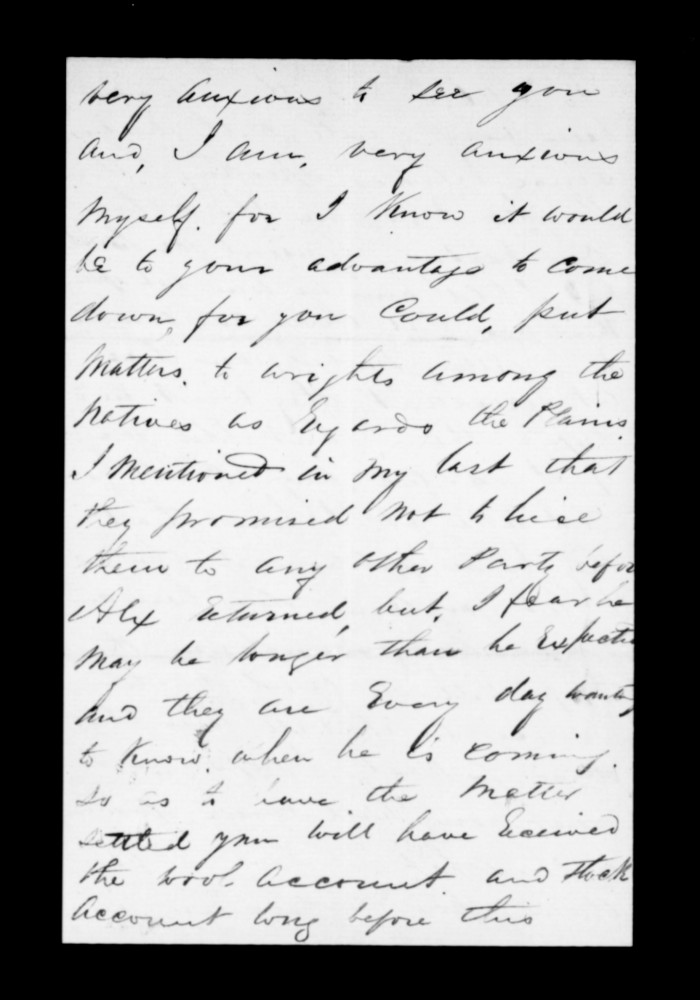 very anxious to see you
and, I am, very anxious
myself. for I Know it would
be to your advantage to come
down, for you Could, put
Matters. to wrights among the
Natives as Regards the Plains.
I Mentioned in my last that
they promised not to
them to any other Party befor
Alex returned, but, I fear he
May be longer than he Expects
and they are Every day wanting
to Know. when he is coming.
so as to have the Matter
settled you will have Received
the wool. account. and Stock
account long before this